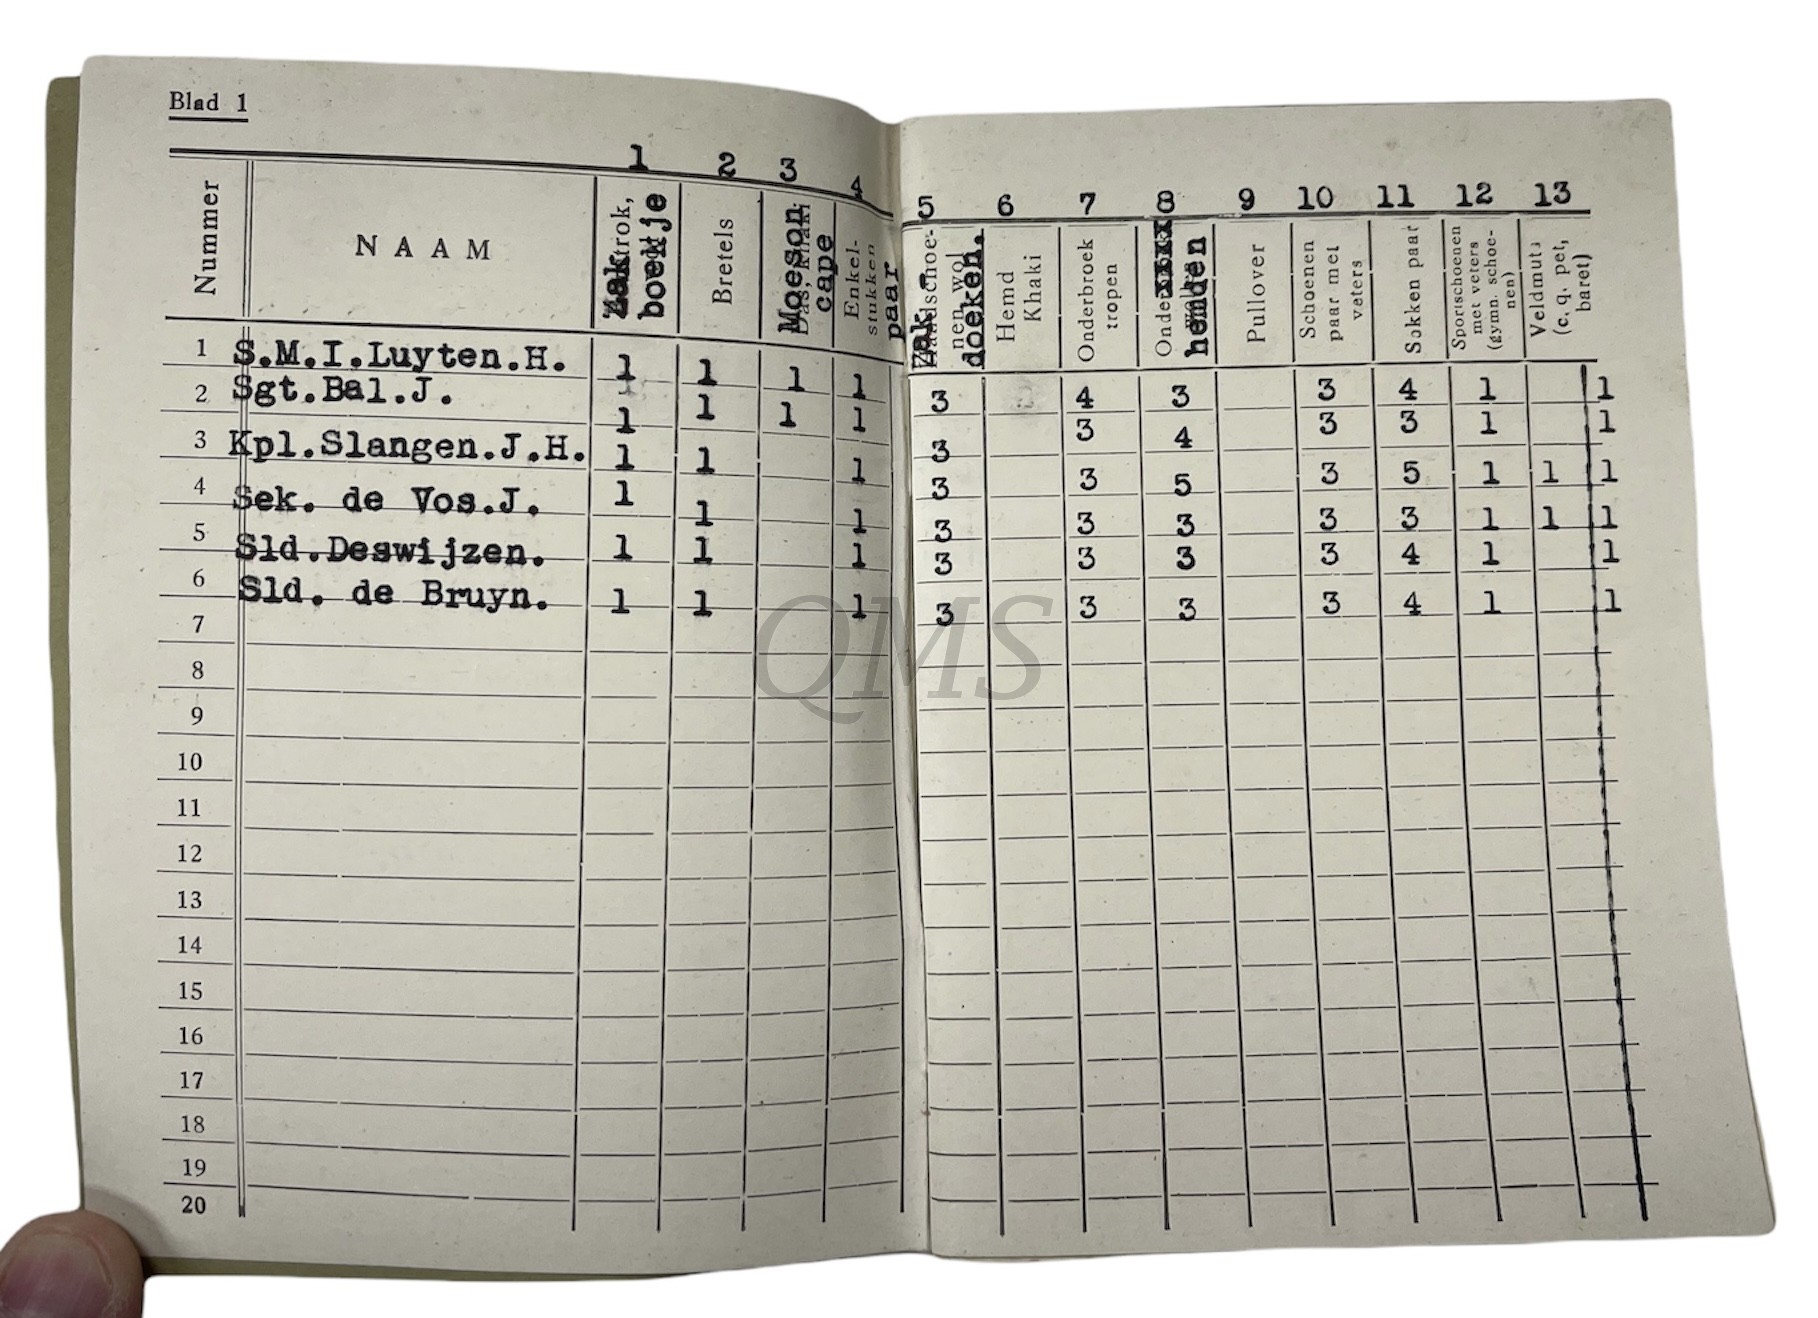 Blad 1
1 2 3 4 5 6 7 8 9 10 11 12 13
Nummer
NAAM
Zak
boekje
Bretels
Moeson
cape
Das, Khaki
Enkel-
stukken
paar
Zak-
doeken.
nen wol
Hemd
Khaki
Onderbroek
tropen
xxxx
hemden
Pullover
Schoenen
paar met
veters
Sokken paar
Sportschoenen
met veters
(gymn. schoe-
nen)
Veldmuts
(c. q. pet,
baret)
1 S.M.I.Luyten.H. 1 1 1 1 3 4 3 3 4 1 1
2 Sgt.Bal.J. 1 1 1 1 3 3 4 3 3 1 1
3 Kpl.Slangen.J.H. 1 1 1 3 3 5 3 5 1 1 1
4 Sek. de Vos.J. 1 1 1 3 3 3 3 3 1 1 1
5 Sld.Deswijzen. 1 1 1 3 3 3 3 4 1 1
6 Sld. de Bruyn. 1 1 1 3 3 3 3 4 1 1
7
8
9
10
11
12
13
14
15
16
17
18
19
20
QMS